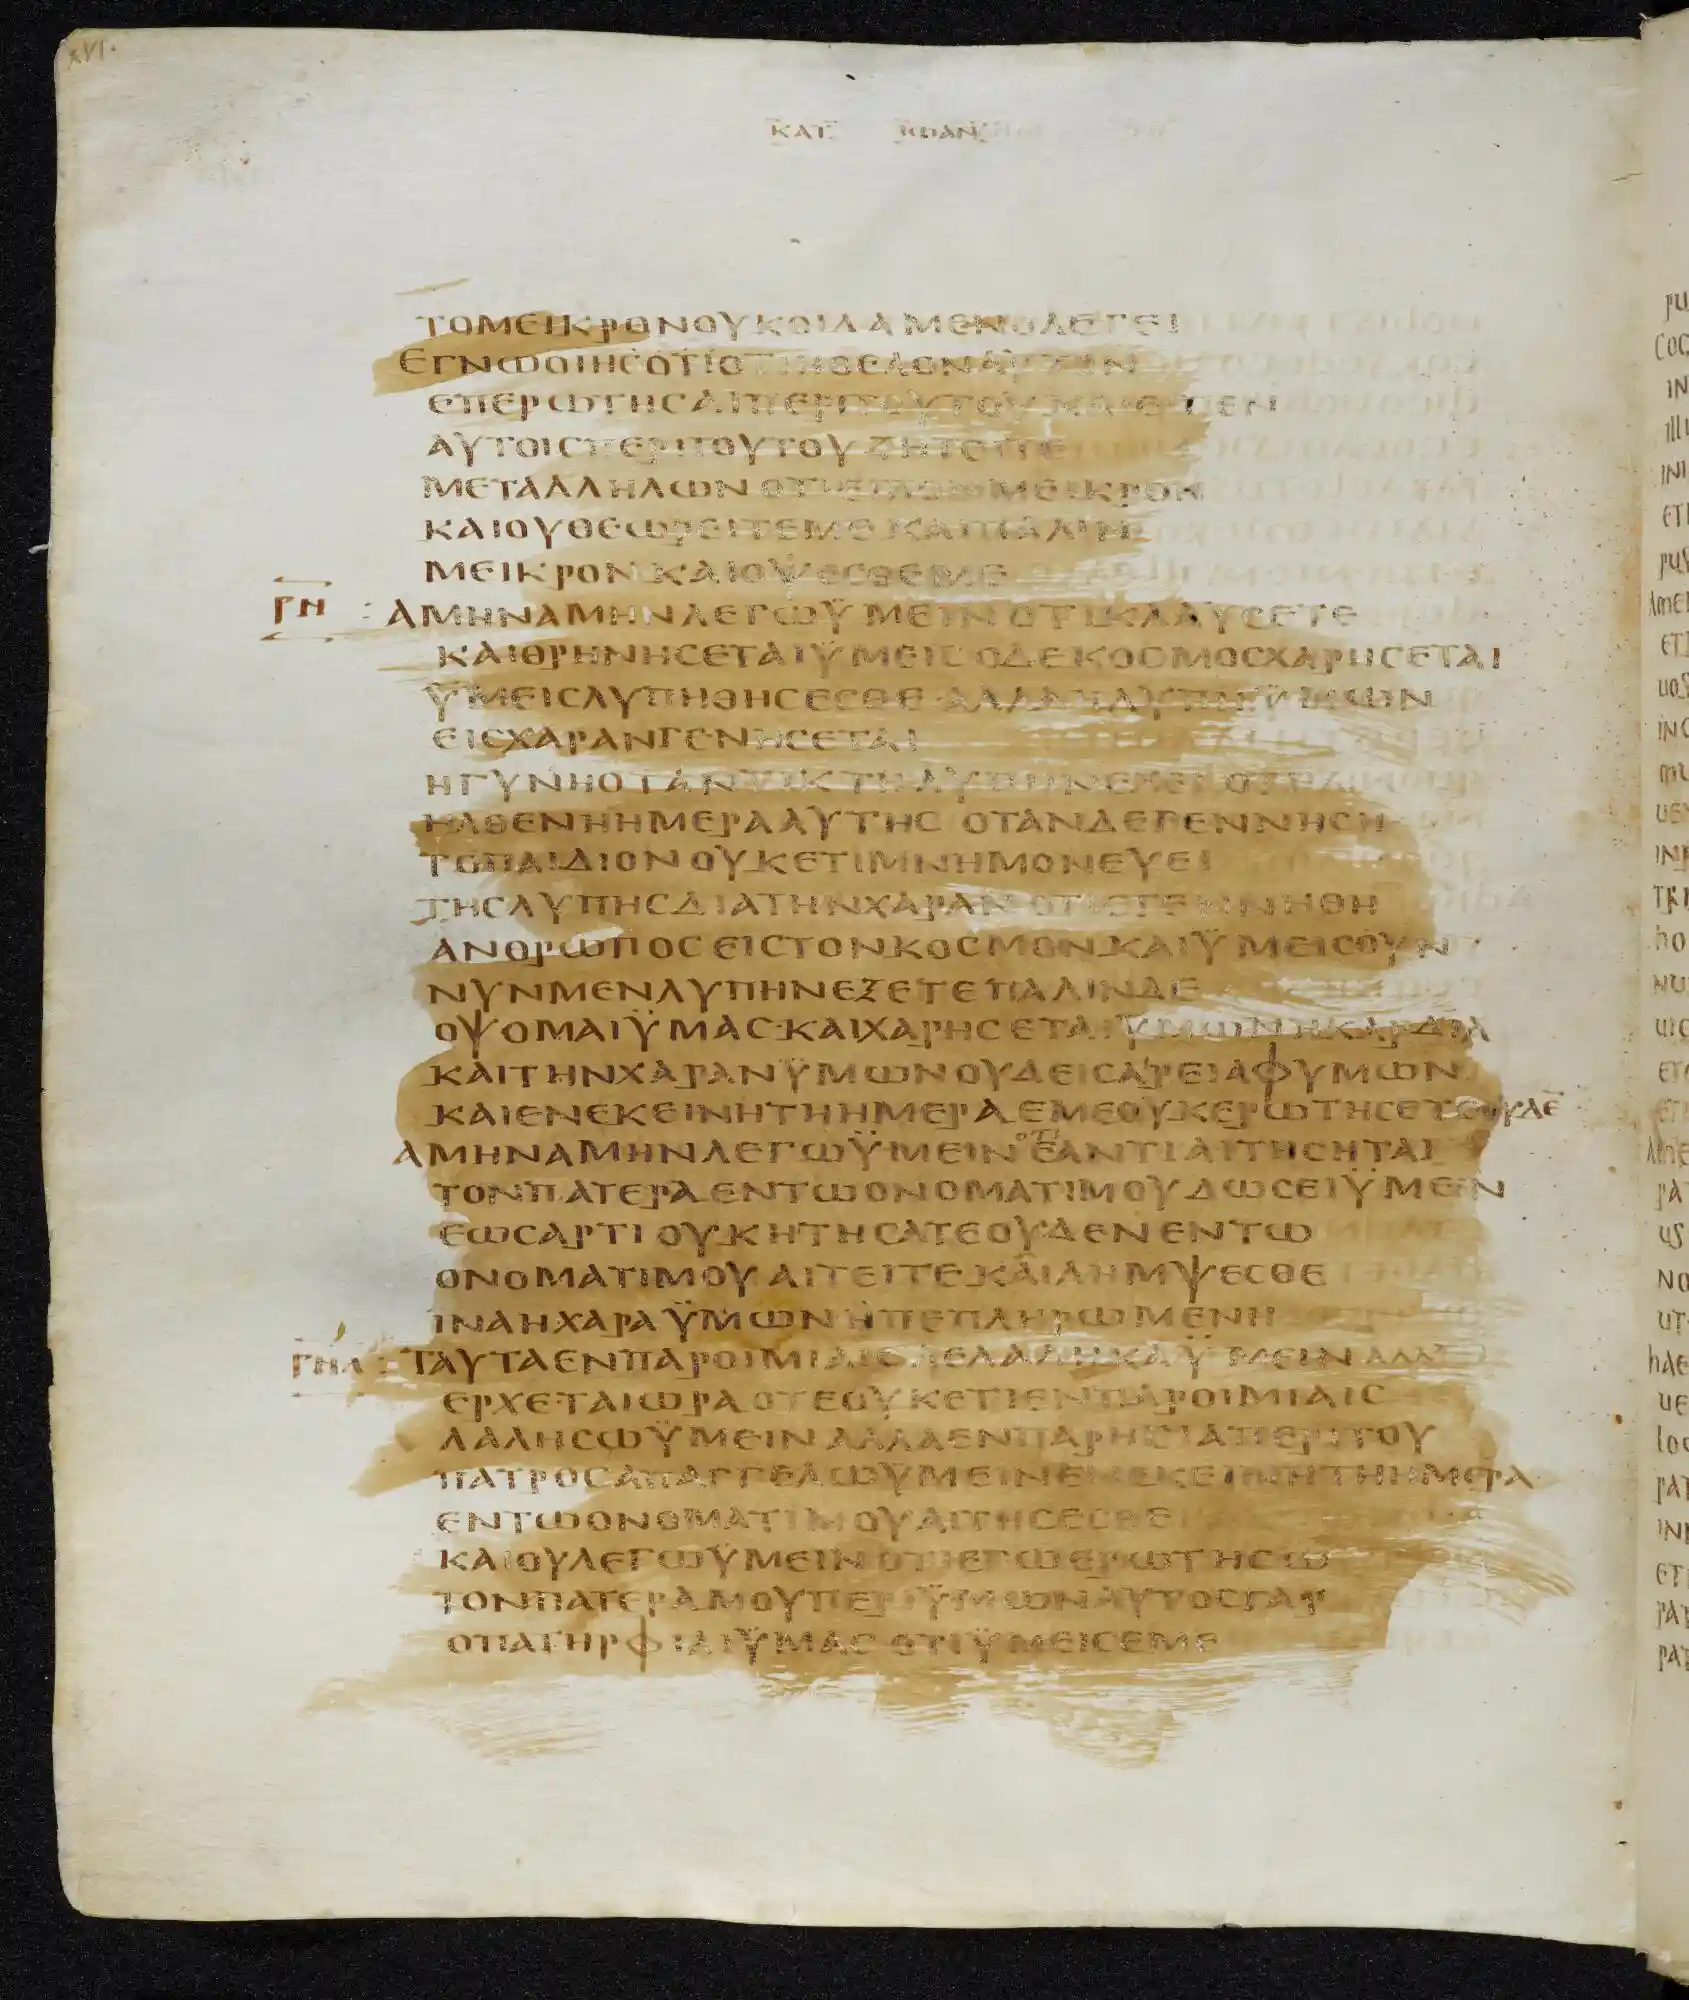 xvi.
ΚΑΤ ΙΩΑΝ
ΤΟΜΕΙΚΡΟΝΟΥΚΟΙΔΑΜΕΝΟΛΕΓΕΙ
ΕΓΝΩΟΙΗϹΟΤΙΟΤΙΗΘΕΛΟΝΑΥΤΟΝ
ΕΠΕΡΩΤΗϹΑΙΠΕΡΙΤΟΥΤΟΥΚΑΙΕΙΠΕΝ
ΑΥΤΟΙϹΠΕΡΙΤΟΥΤΟΥΖΗΤΕΙΤΕ
ΜΕΤΑΛΛΗΛΩΝΟΤΙΕΙΠΟΝΜΕΙΚΡΟΝ
ΚΑΙΟΥΘΕΩΡΕΙΤΕΜΕΚΑΙΠΑΛΙΝ
ΜΕΙΚΡΟΝΚΑΙΟΨΕϹΘΕΜΕ
ΡΝ : ΑΜΗΝΑΜΗΝΛΕΓΩΫΜΕΙΝΟΤΙΚΛΑΥϹΕΤΕ
ΚΑΙΘΡΗΝΗϹΕΤΑΙΫΜΕΙϹΟΔΕΚΟϹΜΟϹΧΑΡΗϹΕΤΑΙ
ΫΜΕΙϹΛΥΠΗΘΗϹΕϹΘΕ·ΑΛΛΑΗΛΥΠΗΫΜΩΝ
ΕΙϹΧΑΡΑΝΓΕΝΗϹΕΤΑΙ
ΗΓΥΝΗΟΤΑΝΤΙΚΤΗΛΥΠΗΝΕΧΕΙΟΤΙ
ΗΛΘΕΝΗΗΜΕΡΑΑΥΤΗϹ ΟΤΑΝΔΕΓΕΝΝΗϹΗ
ΤΟΠΑΙΔΙΟΝΟΥΚΕΤΙΜΝΗΜΟΝΕΥΕΙ
ΤΗϹΛΥΠΗϹΔΙΑΤΗΝΧΑΡΑΝΟΤΙΕΓΕΝΝΗΘΗ
ΑΝΘΡΩΠΟϹΕΙϹΤΟΝΚΟϹΜΟΝΚΑΙΫΜΕΙϹΟΥΝ
ΝΥΝΜΕΝΛΥΠΗΝΕΞΕΤΕΠΑΛΙΝΔΕ
ΟΨΟΜΑΙΫΜΑϹ·ΚΑΙΧΑΡΗϹΕΤΑΙΫΜΩΝΗΚΑΡΔΙΑ
ΚΑΙΤΗΝΧΑΡΑΝΫΜΩΝΟΥΔΕΙϹΑΡΕΙΑΦΥΜΩΝ
ΚΑΙΕΝΕΚΕΙΝΗΤΗΗΜΕΡΑΕΜΕΟΥΚΕΡΩΤΗϹΕΤΕΟΥΔΕ̅
ΑΜΗΝΑΜΗΝΛΕΓΩΫΜΕΙΝ ΟΤΙ ΕΑΝΤΙΑΙΤΗϹΗΤΑΙ
ΤΟΝΠΑΤΕΡΑΕΝΤΩΟΝΟΜΑΤΙΜΟΥΔΩϹΕΙΫΜΕΙΝ
ΕΩϹΑΡΤΙΟΥΚΗΤΗϹΑΤΕΟΥΔΕΝΕΝΤΩ
ΟΝΟΜΑΤΙΜΟΥΑΙΤΕΙΤΕΚΑΙΛΗΜΨΕϹΘΕ
ΙΝΑΗΧΑΡΑΫΜΩΝΗΠΕΠΛΗΡΩΜΕΝΗ
ΡΝΑ : ΤΑΥΤΑΕΝΠΑΡΟΙΜΙΑΙϹΛΕΛΑΛΗΚΑΫΜΕΙΝ
ΕΡΧΕΤΑΙΩΡΑΟΤΕΟΥΚΕΤΙΕΝΠΑΡΟΙΜΙΑΙϹ
ΛΑΛΗϹΩΫΜΕΙΝΑΛΛΑΕΝΠΑΡΗϹΙΑΠΕΡΙΤΟΥ
ΠΑΤΡΟϹΑΠΑΓΓΕΛΩΫΜΕΙΝΕΝΕΚΕΙΝΗΤΗΗΜΕΡΑ
ΕΝΤΩΟΝΟΜΑΤΙΜΟΥΑΙΤΗϹΕϹΘΕ
ΚΑΙΟΥΛΕΓΩΫΜΕΙΝΟΤΙΕΓΩΕΡΩΤΗϹΩ
ΤΟΝΠΑΤΕΡΑΜΟΥΠΕΡΙΫΜΩΝΑΥΤΟϹΓΑΡ
ΟΠΑΤΗΡΦΙΛΙΫΜΑϹ ΟΤΙΫΜΕΙϹΕΜΕ